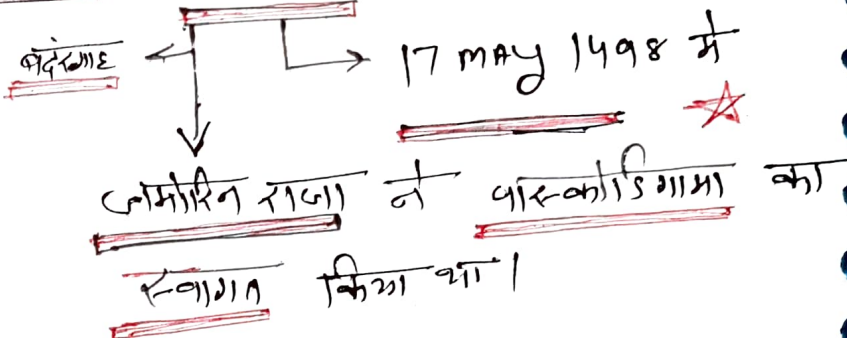 बंदरगाह
17 MAY 1498 मे
जामोरिन राजा ने वास्कोडिगामा का
स्वागत किया था।